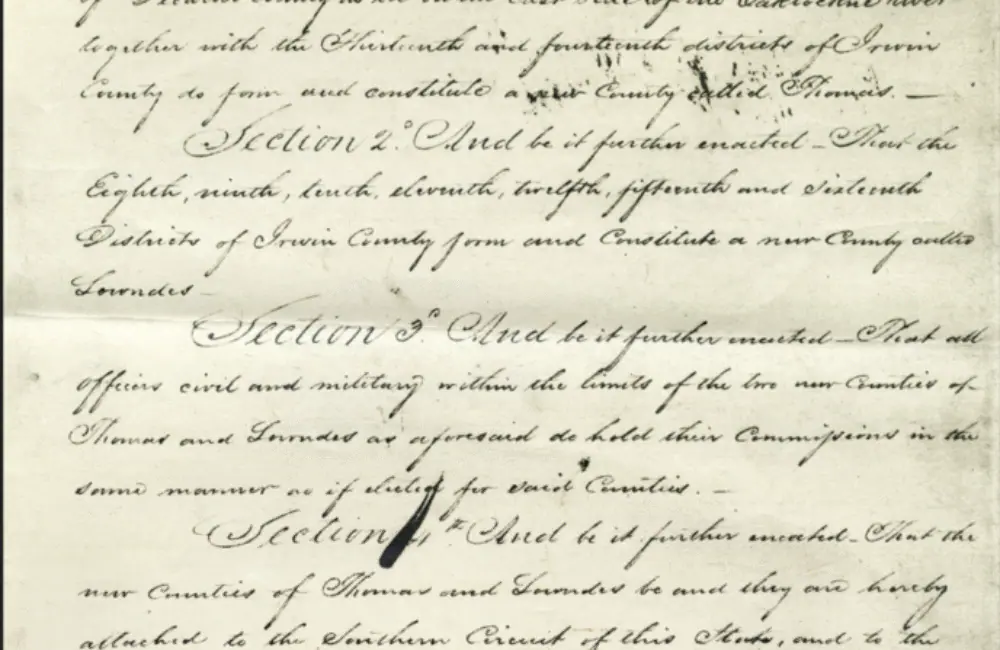 of Decatur County as lie on the East side of the Oaklockne river
together with the Thirteenth and fourteenth districts of Irwin
County do form and constitute a new County called Thomas. —
Section 2d. And be it further enacted — That the
Eighth, ninth, tenth, eleventh, twelfth, fifteenth and sixteenth
Districts of Irwin County form and Constitute a new County called
Lowndes —
Section 3d. And be it further enacted — That all
officers civil and military within the limits of the two new Counties of
Thomas and Lowndes as aforesaid do hold their Commissions in the
same manner as if elected for said Counties. —
Section 4th And be it further enacted — That the
new Counties of Thomas and Lowndes be and they are hereby
attached to the Southern Circuit of this State, and to the